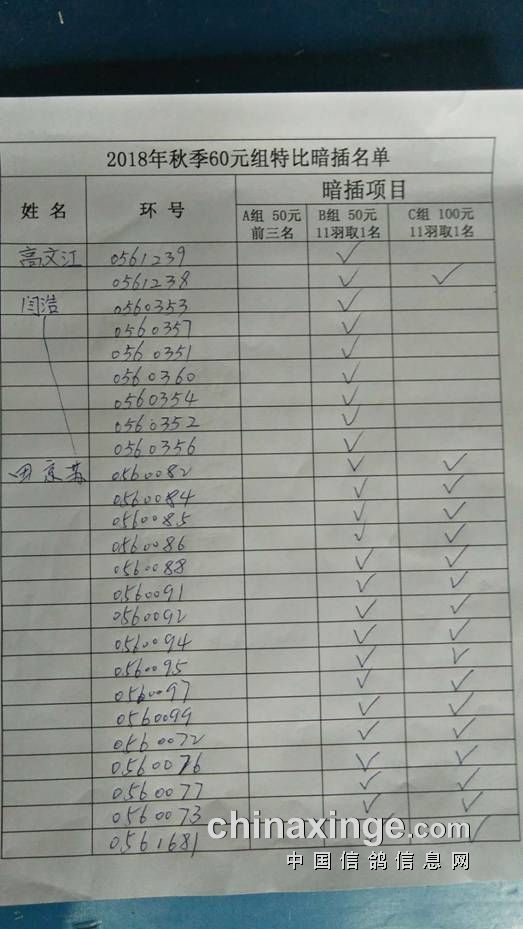 2018年秋季60元组特比暗插名单
姓 名 环 号 暗插项目
A组 50元 B组 50元 C组 100元
前三名 11羽取1名 11羽取1名
高文江 0561239 ✓
0561238 ✓ ✓
闫浩 0560353 ✓
0560357 ✓
0560351 ✓
0560360 ✓
0560354 ✓
0560352 ✓
0560356 ✓
0560082 ✓ ✓
0560084 ✓ ✓
0560085 ✓ ✓
0560086 ✓ ✓
0560088 ✓ ✓
0560091 ✓ ✓
0560092 ✓ ✓
0560094 ✓ ✓
0560095 ✓ ✓
0560097 ✓ ✓
0560099 ✓ ✓
0560072 ✓ ✓
0560076 ✓ ✓
0560077 ✓ ✓
0560073 ✓ ✓
0561681 ✓
chinaxinge.com
中国信鸽信息网